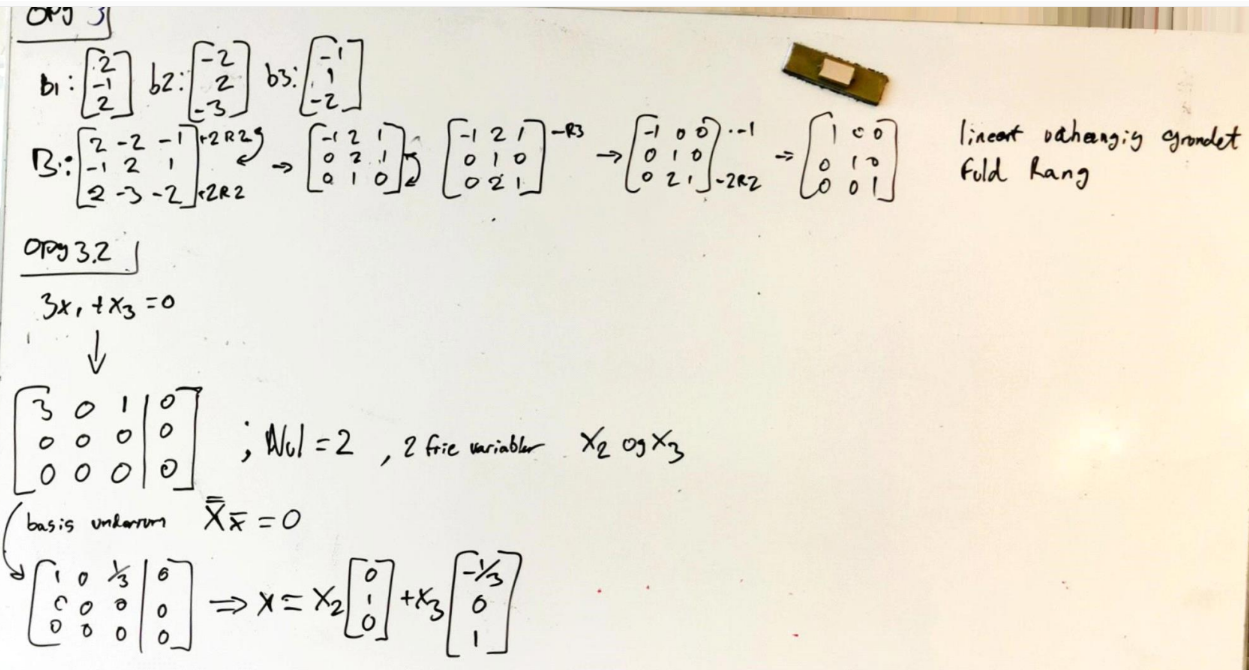 Opg 3
b1: [2; -1; 2] b2: [-2; 2; -3] b3: [-1; 1; -2]
B: [2 -2 -1; -1 2 1; 2 -3 -2] +2R2 +2R2 → [-1 2 1; 0 2 1; 0 1 0] [-1 2 1; 0 1 0; 0 2 1] -R3 → [-1 0 0; 0 1 0; 0 2 1] ·-1 -2R2 → [1 0 0; 0 1 0; 0 0 1] grundet
Fuld Rang
Opg 3.2
3x₁ + x₃ = 0
↓
[3 0 1 | 0; 0 0 0 | 0; 0 0 0 | 0] ; Nul = 2 , 2 frie variabler x₂ og x₃
basis underrum X̿x̄ = 0
[1 0 1/3 | 0; 0 0 0 | 0; 0 0 0 | 0] ⇒ x = x₂ [0; 1; 0] + x₃ [-1/3; 0; 1]